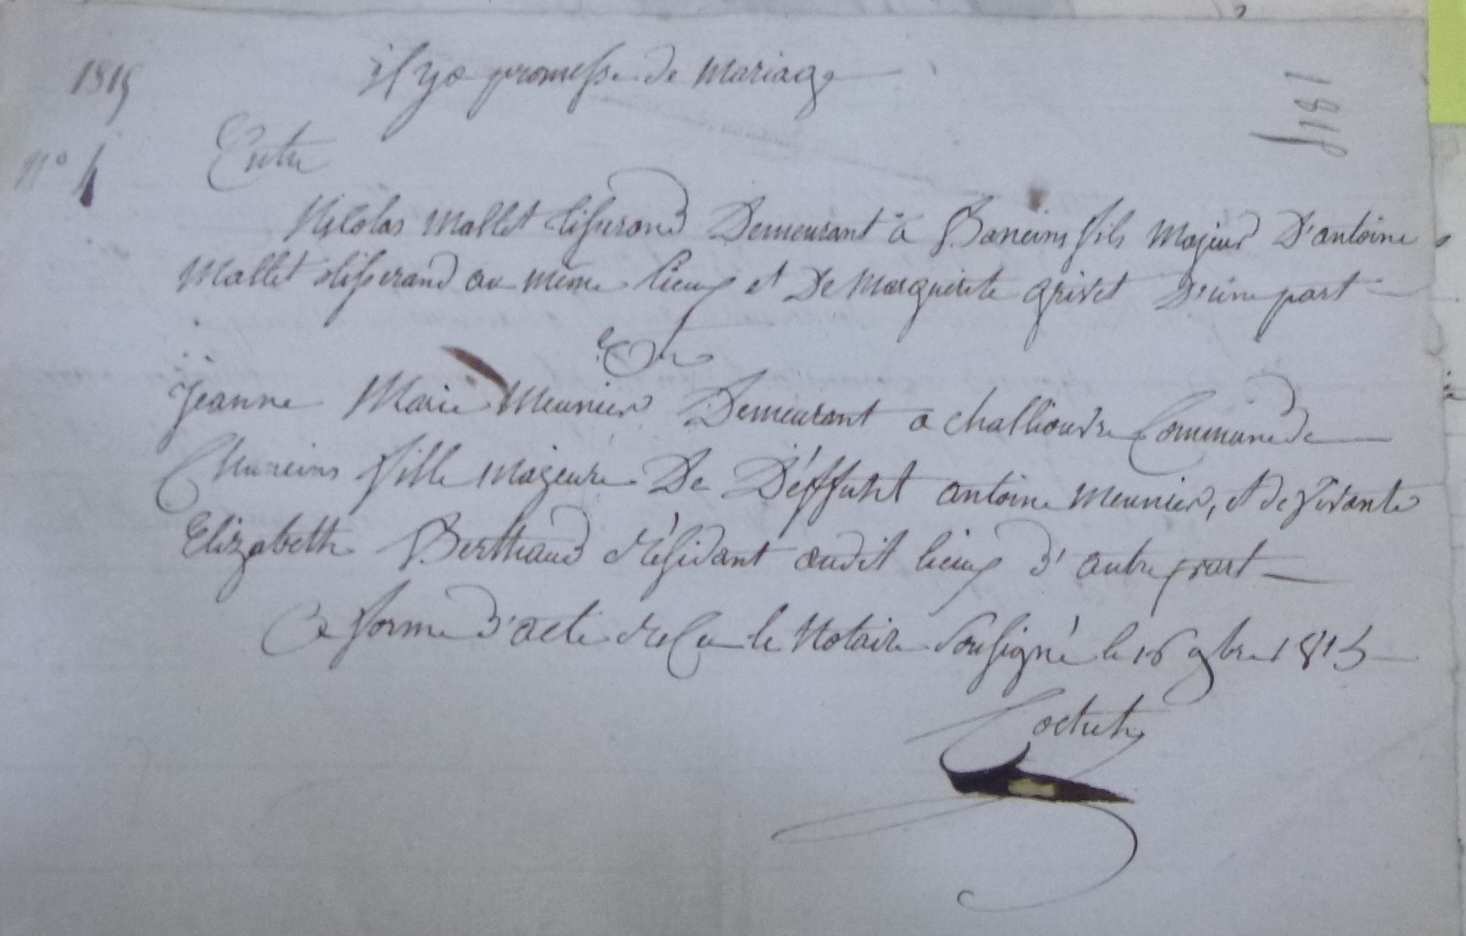 1815
il y a promesse de mariage
1815
n° 4
Entre
Nicolas Mallet tisserand Demeurant à Baneins fils Majeur D'antoine
Mallet tisserand au même lieux et De Marguerite grivet D'une part
Et
jeanne Marie Meunier Demeurant a challiouvre Commune de
Chaneins fille Majeure De Déffunt antoine meunier, et de vivante
Elizabeth Berthaud résidant audit lieux d'autre part
forme d'acte le Notaire sousigné le 16 9bre 1815